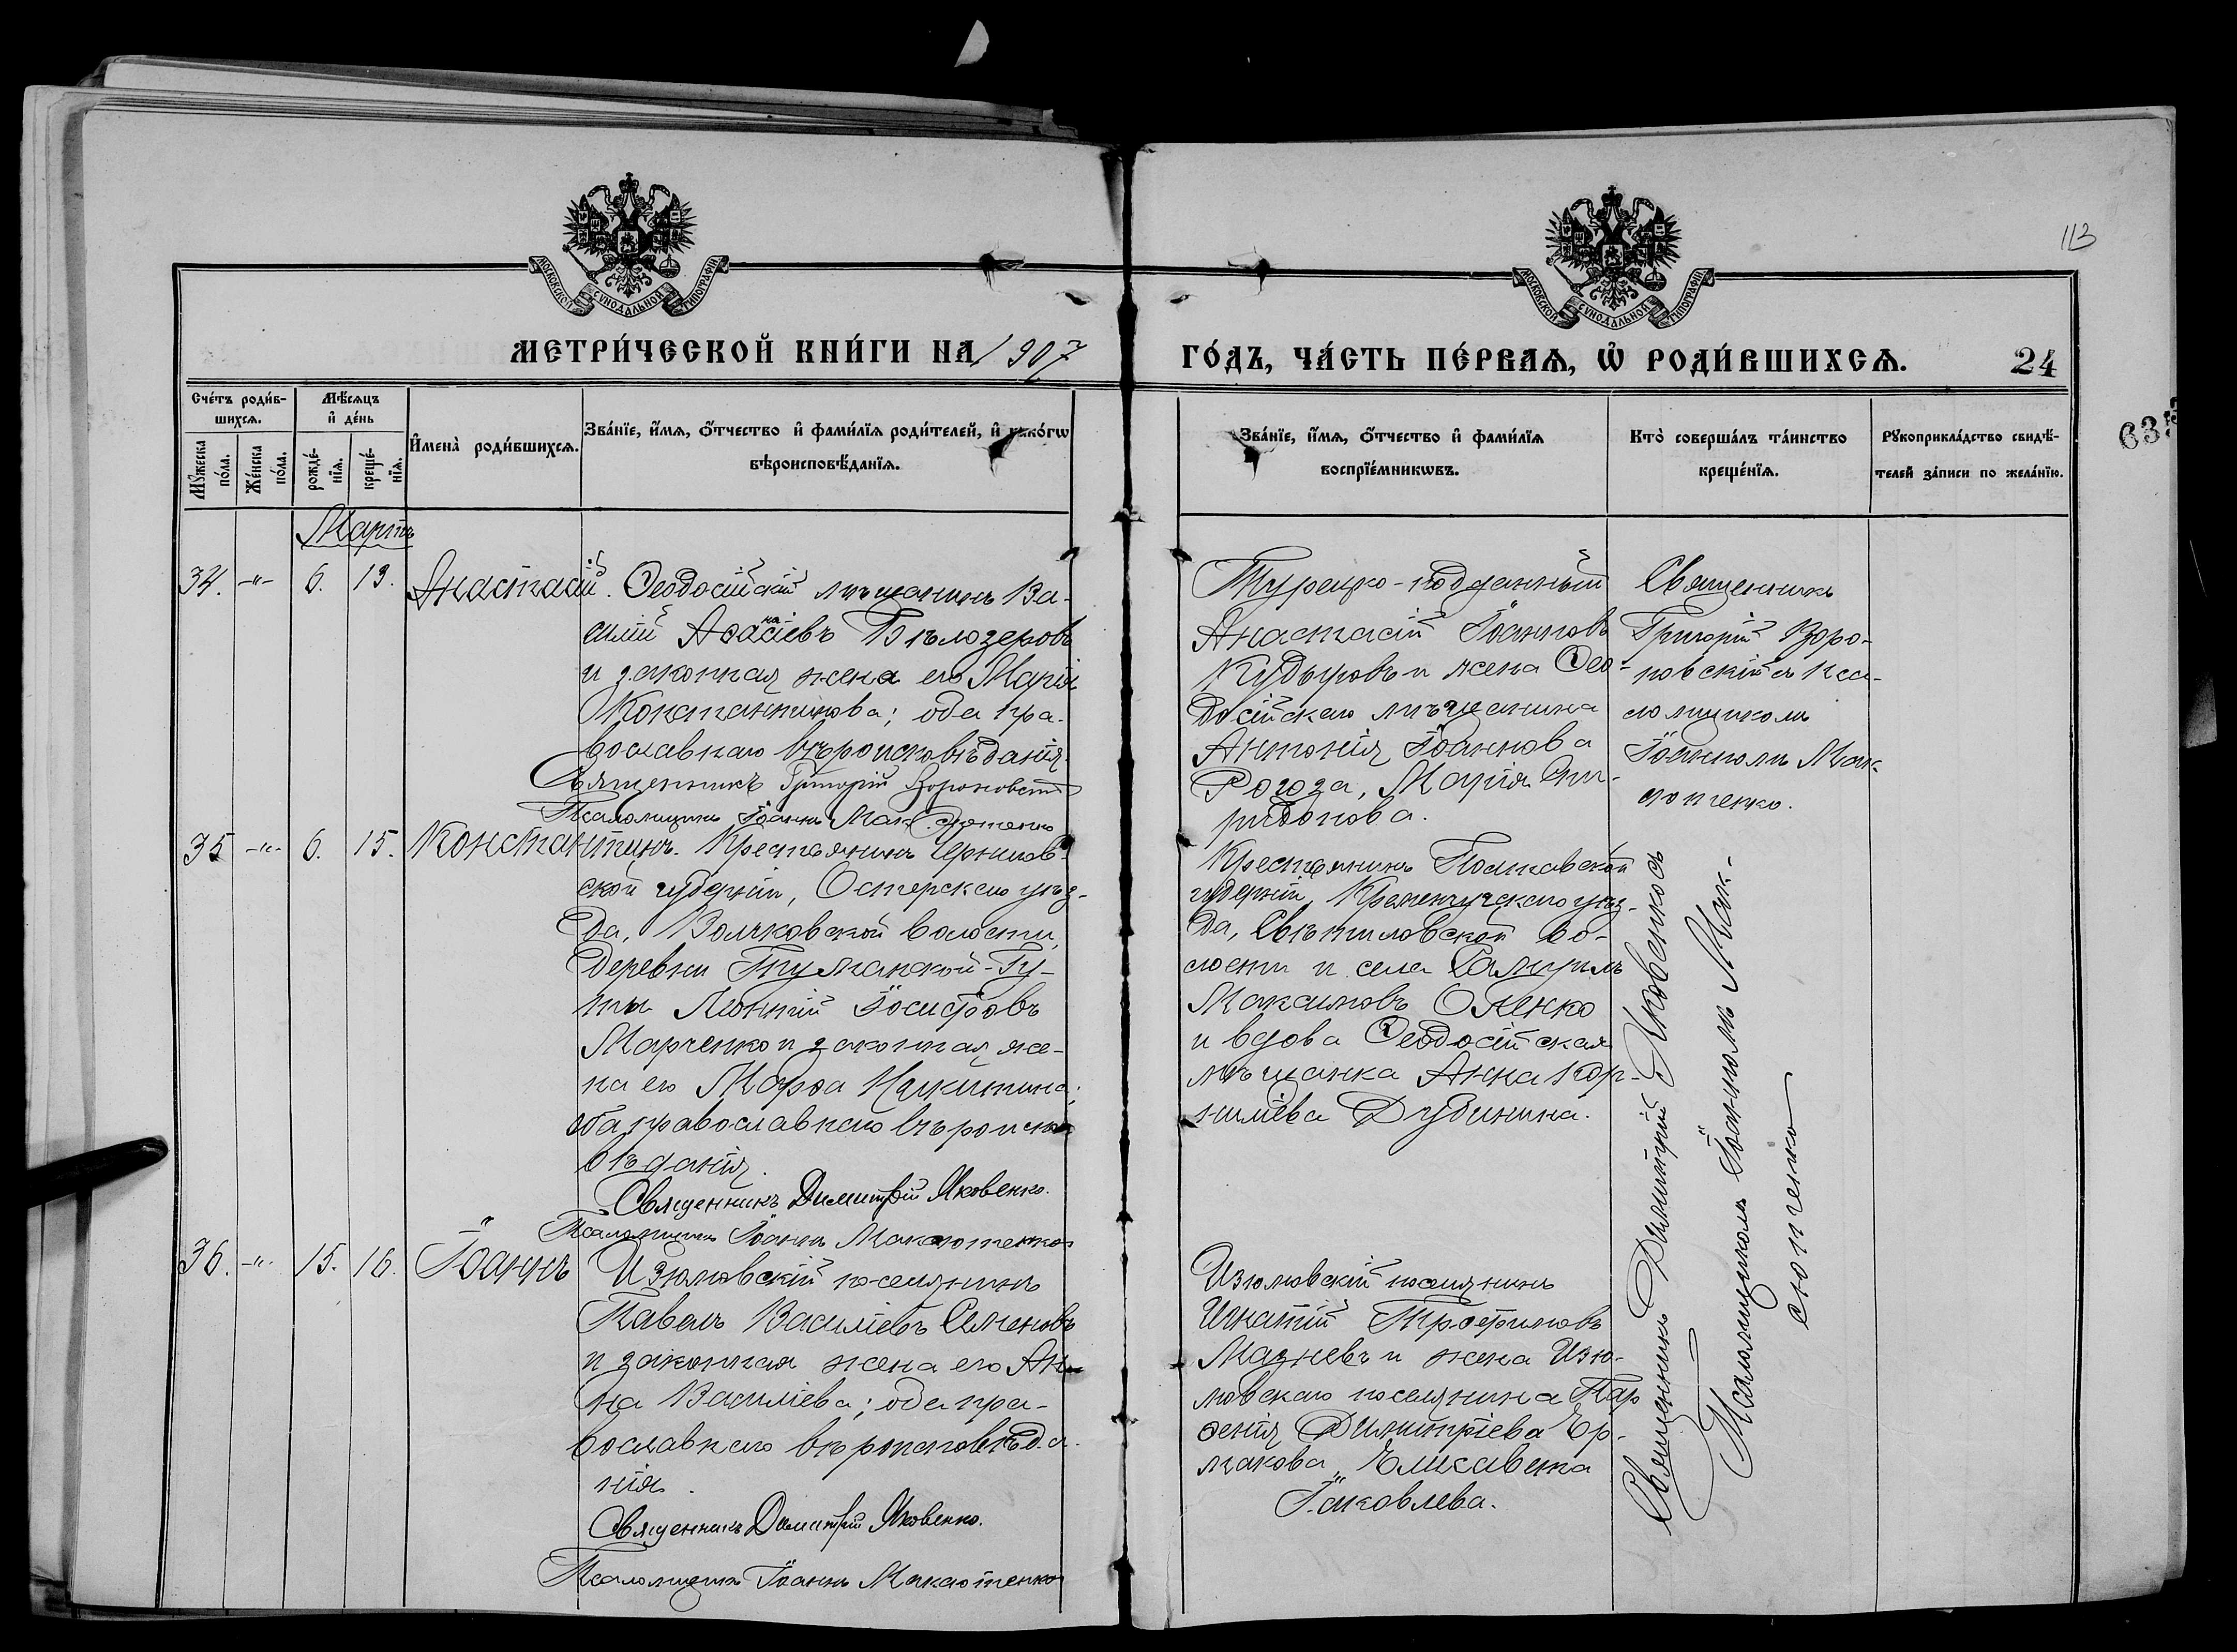 113
МОСКОВСКОЙ СѴНОДАЛЬНОЙ ТИПОГРАФІИ
МОСКОВСКОЙ СѴНОДАЛЬНОЙ ТИПОГРАФІИ
МЕТРИ́ЧЕСКОЙ КНИ́ГИ НА 1907
ГО́ДЪ, ЧА́СТЬ ПЕ́РВАѦ, Ѡ҆ РОДИ́ВШИХСѦ.
24
63
Сче́тъ роди́в-
шихсѧ.
Мꙋжеска по́ла.
Же́нска по́ла.
Мѣ́сѧцъ
и҆ де́нь
рожде́-
нїѧ.
креще́-
нїѧ.
И҆мена̀ роди́вшихсѧ.
Зва́нїе, и҆́мѧ, ѻ҆́тчество и҆ фами́лїѧ роди́телей, и҆ како́гѡ
вѣроисповѣ́данїѧ.
Зва́нїе, и҆́мѧ, ѻ҆́тчество и҆ фами́лїѧ
воспрїе́мникѡвъ.
Кто̀ соверша́лъ та́инство
креще́нїѧ.
Рꙋкоприкла́дство свидѣ́-
телей за́писи по жела́нїю.
Мартъ
34. -"- 6. 13. Анастасій.
Ѳеодосійскій мѣщанинъ Ва-
силій Аѳанасіевъ Бѣлозеровъ
и законная жена его Марія
Константинова; оба пра-
вославнаго вѣроисповѣданія.
Священникъ Григорій
Псаломщикъ Іоаннъ Максютенко
Турецко-подданный
Анастасій Іоанновъ
Кудыровъ и жена Ѳео-
досійскаго мѣщанина
Антонія Іоаннова
Рогоза, Марія Спи-
ридонова.
Священникъ
Григорій
псаломщикомъ
Іоанномъ Мак-
сютенко.
35 -"- 6. 15. Константинъ.
Крестьянинъ Чернигов-
ской губерніи, Остерскаго уѣз-
да, волости,
деревни Туманской-Гу-
ты Леонтій Іосифовъ
Марченко и законная же-
на его Марѳа Никитина;
оба православнаго вѣроиспо-
вѣданія.
Священникъ Димитрій Яковенко.
Псаломщикъ Іоаннъ Максютенко
Крестьянинъ Полтавской
губерніи, Кременчугскаго уѣз-
да, во-
лости и села Самуилъ
Максимовъ Оленко
и вдова Ѳеодосійская
мѣщанка Анна Кор-
нилiева Дудинина.
Священникъ Димитрій Яковенко съ
Псаломщикомъ Іоанномъ Мак-
сютенко
36. -"- 15. 16. Іоаннъ
Изюмовскій поселянинъ
Павелъ Василіевъ Семеновъ
и законная жена его Ан-
на Василіева; оба пра-
вославнаго вѣроисповѣда-
нія.
Священникъ Димитрій Яковенко.
Псаломщикъ Іоаннъ Максютенко
Изюмовскій поселянинъ
Игнатій Трофимовъ
Мазневъ и жена Изю-
мовскаго поселянина Пар-
ѳенія Димитріева Ер-
макова, Елисавета
Іаковлева.